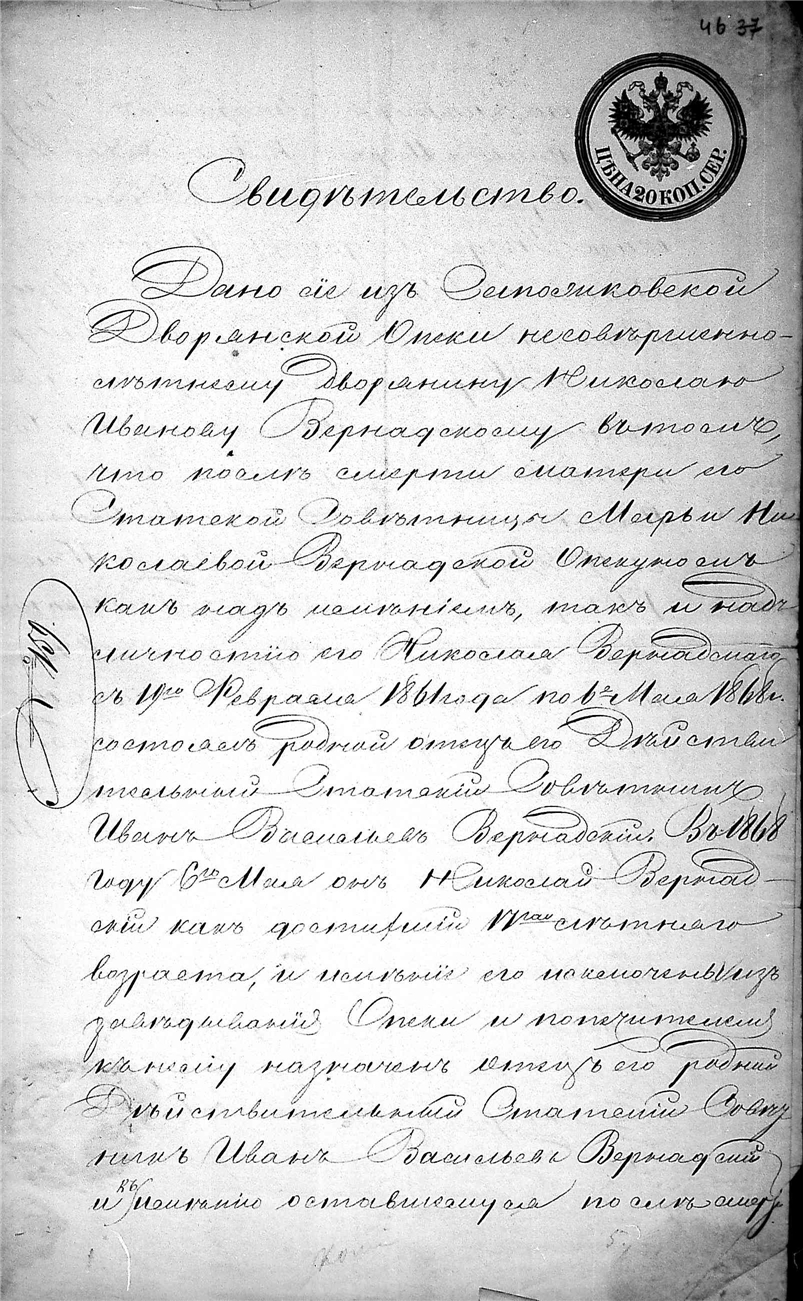 46 37
ЦѢНА 20 КОП. СЕР.
Свидѣтельство.
Дано сіе изъ
Дворянской Опеки несовѣршенно-
лѣтнему дворянину Николаю
Иванову Вернадскому въ томъ,
что послѣ смерти матери его
Статской Совѣтницы Марьи Ни
колаевой Вернадской Опекуномъ
какъ надъ имѣніемъ, такъ и надъ
личностію его Николая Вернадскаго
съ 19го Февраля 1861 года по 6е Мая 1868 г.
состоялъ родной отецъ его Дѣйстви
тельный Статскій Совѣтникъ
Иванъ Васильевъ Вернадскій. Въ 1868
году 6го Мая онъ Николай Вернад-
скій какъ достигшій 17 лѣтняго
возраста, и имѣніе его исключены изъ
завѣдыванія Опеки и попечителемъ
къ нему назначенъ отецъ его родной
Дѣйствительный Статскій Совѣт
никъ Иванъ Васильевъ Вернадскій
и къ имѣнію оставшемуся послѣ смер